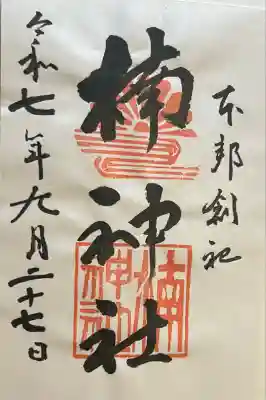 本邦創祀
楠神社
楠神社
令和七年九月二十七日